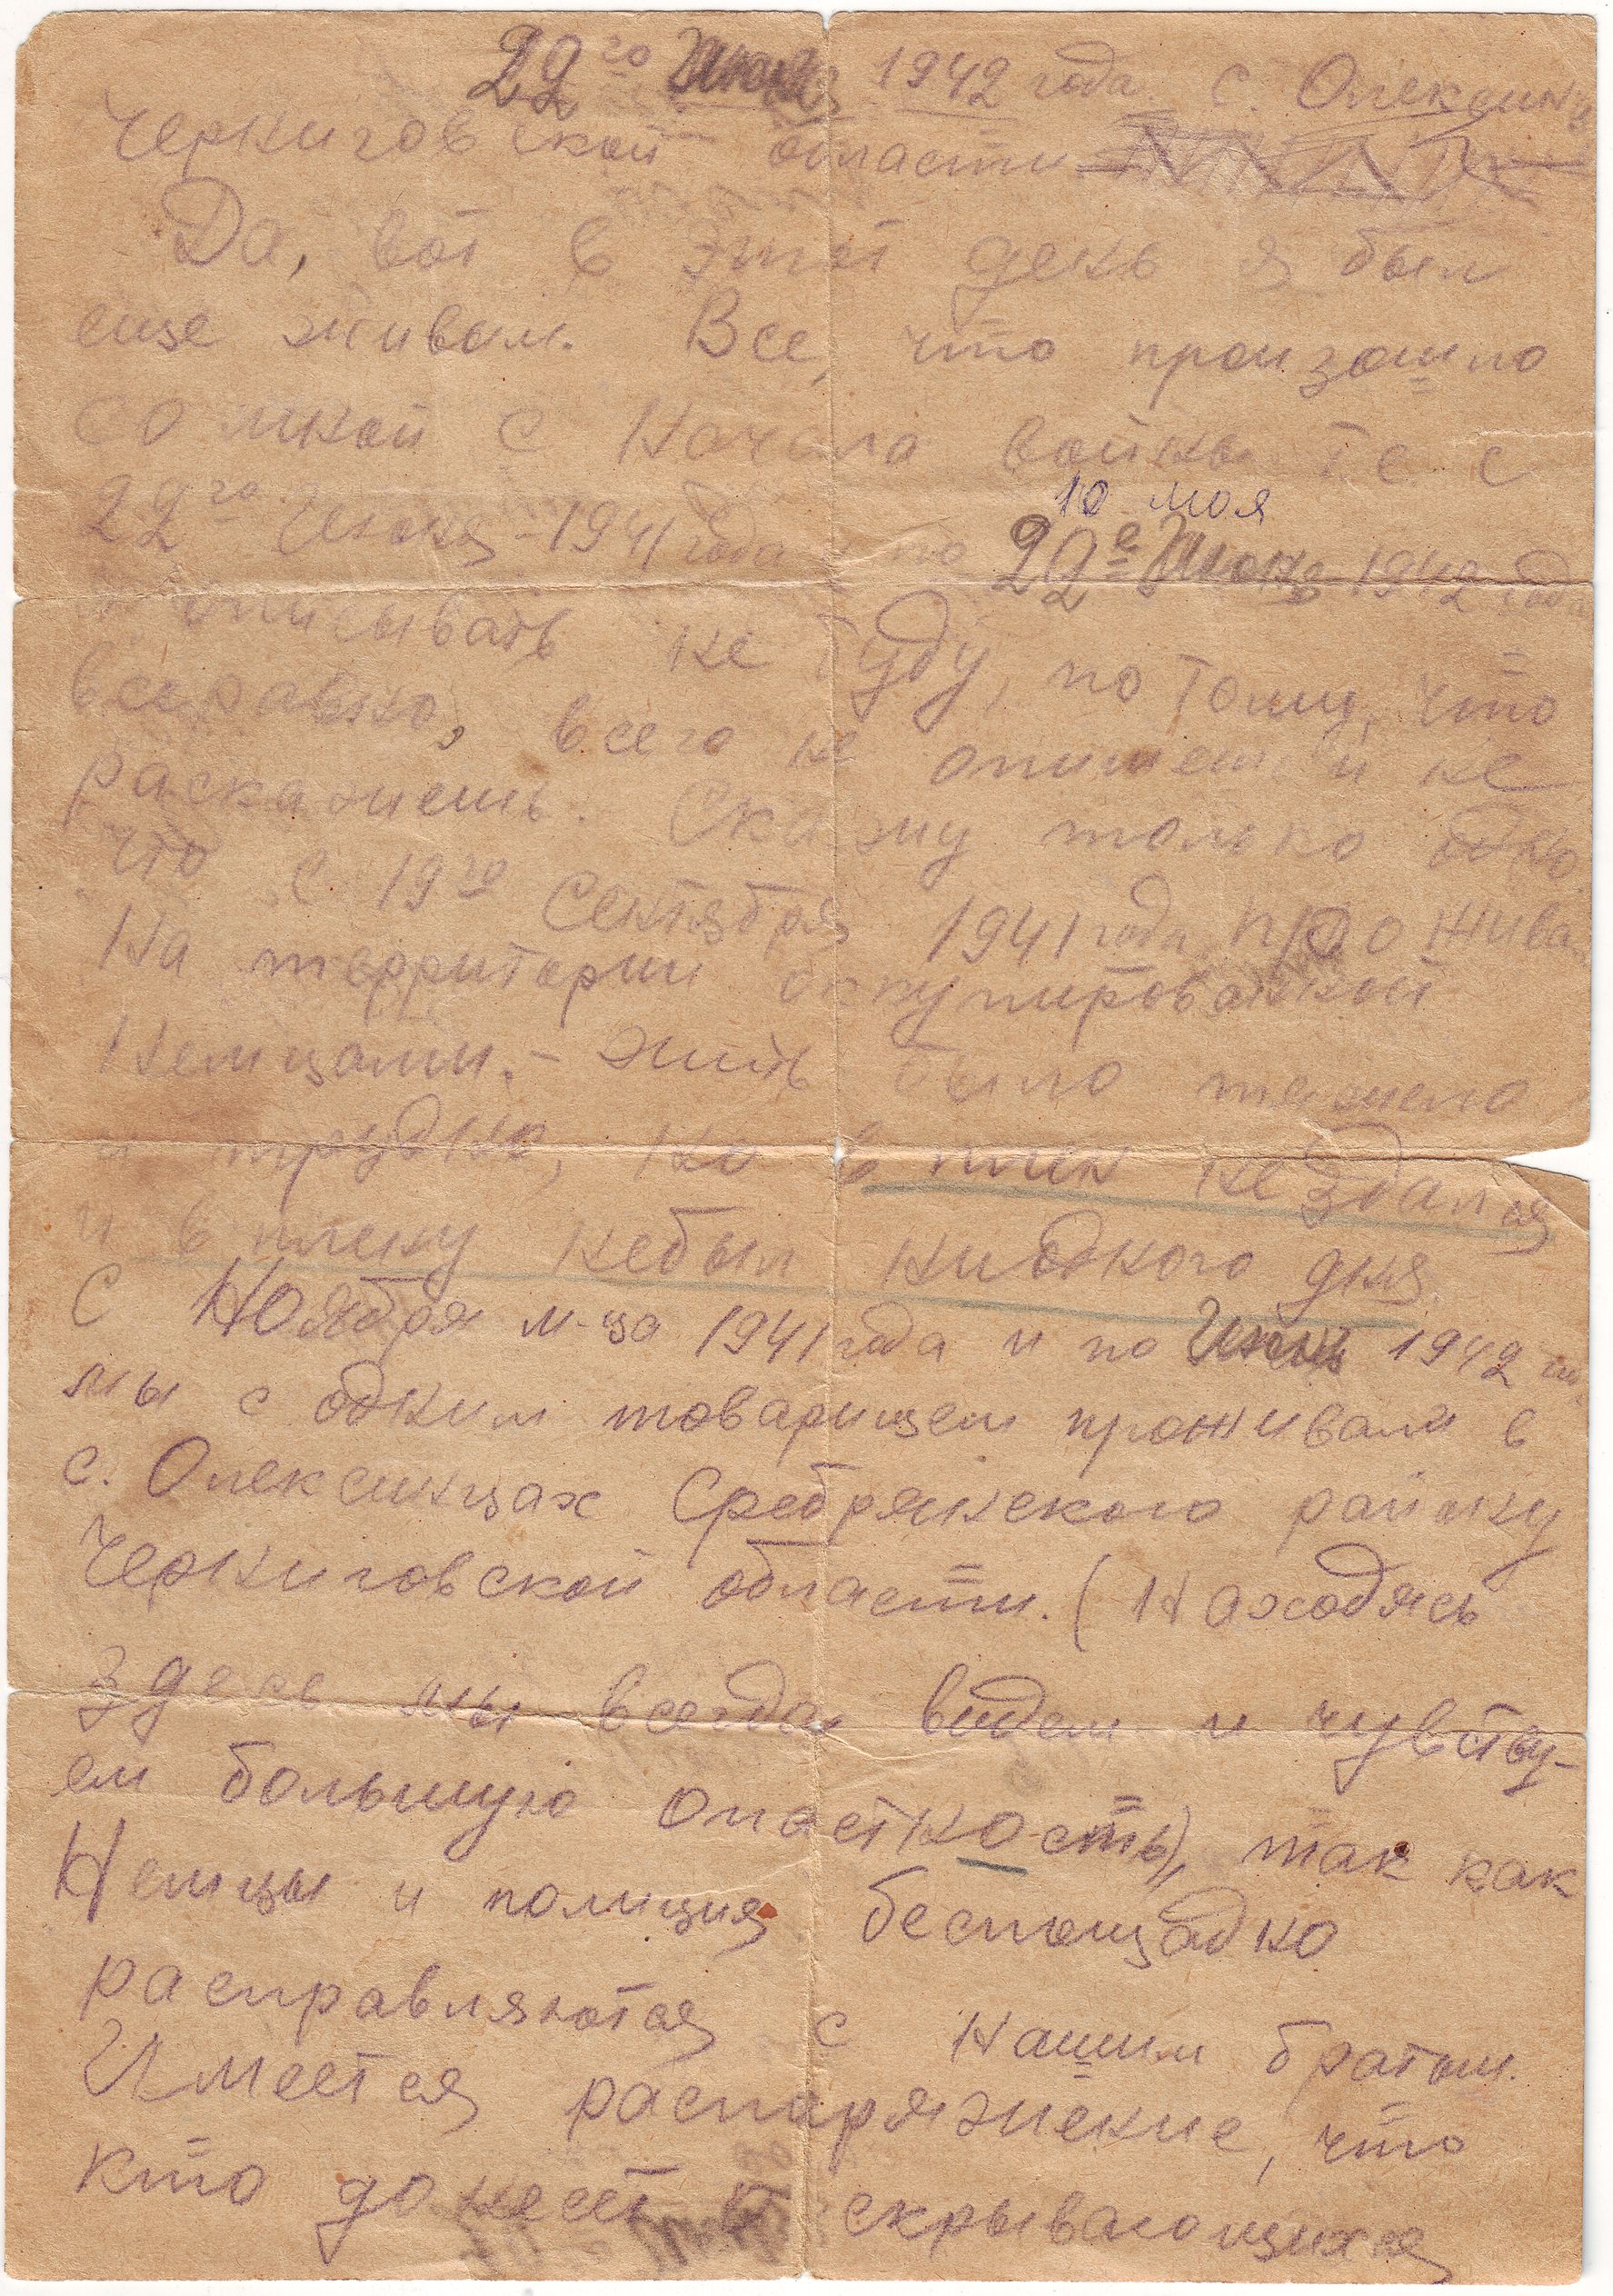 22го Июня 1942 года. с. Олексинцы
Черниговской области
Да, вот в этот день я был
еще живым. Все, что произошло
со мной с начала войны те с
10 мая
22го Июня - 1941 года и по 22е Июня 1942 года
описывать не буду, по тому, что
всеравно, всего не опишеш и не
раскажешь. Скажу только одно
что с 19го Сентября 1941 года прожива
На территории оккупированной
Немцами. - жить было тяжело
и трудно, но в плен не здался
и в плену небыл ниодного дня.
С Ноября м-ца 1941 года и по Июнь 1942 го
мы с одним товарищем проживали в
с. Олексинцах Сребрянского району
Черниговской области. (Находясь
здесь мы всегда видем и чувству-
ем большую опастность), так как
Немцы и полиция беспощадно
расправляются с нашим братом.
Имеется распаряжение, что
кто донесеть скрывающихся